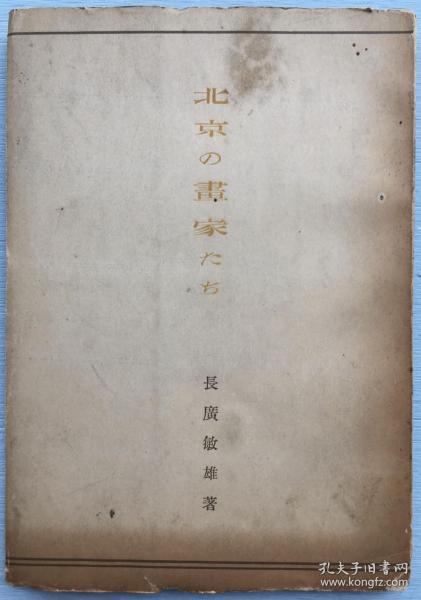 北京の畫家たち
長廣敏雄著
孔夫子旧书网
www.kongfz.com